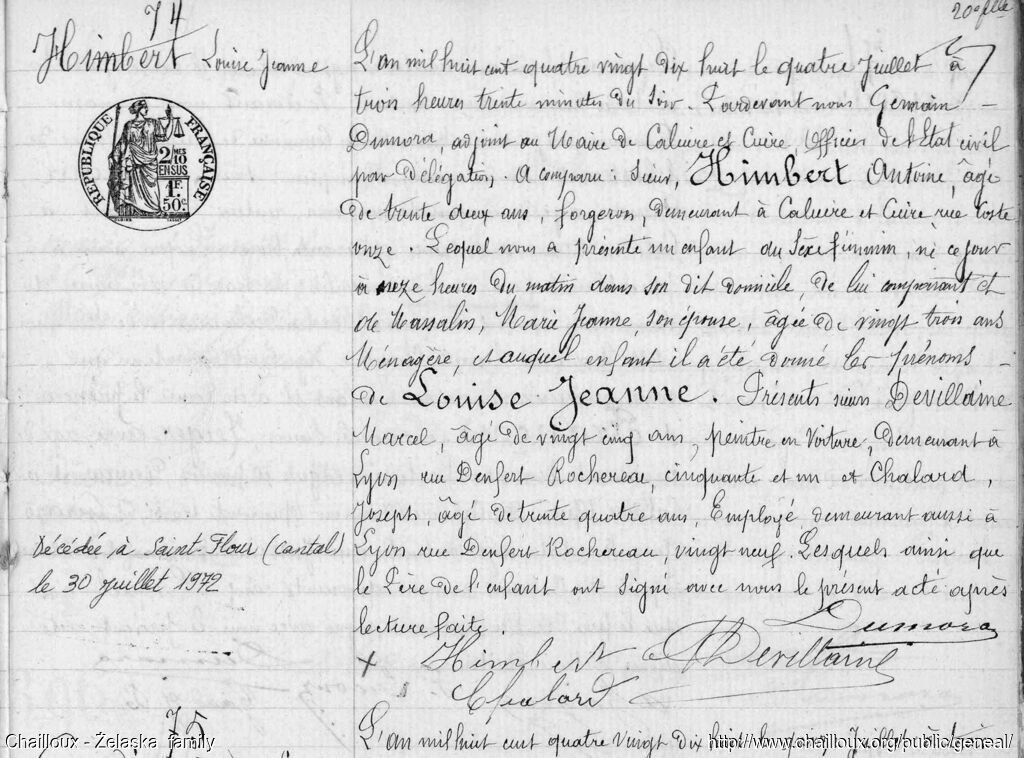 74
20e flle
Himbert Louise Jeanne
RÉPUBLIQUE FRANÇAISE
2/10 MES
EN SUS
1F.
50c.
L'an mil huit cent quatre vingt dix huit le quatre Juillet à
trois heures trente minutes du soir. Pardevant nous Germain
Dumora, adjoint au Maire de Caluire et Cuire, Officier de l'Etat civil
par délégation. A comparu : Sieur, Himbert Antoine, âgé
de trente deux ans, forgeron, demeurant à Caluire et Cuire rue Coste
onze Lequel nous a présenté un enfant du sexe féminin, né ce jour
à onze heures du matin dans son dit domicile, de lui comparant et
de Massalin, Marie Jeanne, son épouse, âgée de vingt trois ans
Ménagère, et auquel enfant il a été donné les prénoms
de Louise Jeanne. Présents sieurs Devillaine
Marcel, âgé de vingt cinq ans, peintre en Voiture, demeurant à
Lyon rue Denfert Rochereau, cinquante et un et Chalard,
Joseph, âgé de trente quatre ans, Employé demeurant aussi à
Lyon rue Denfert Rochereau, vingt neuf. Lesquels ainsi que
le Père de l'enfant ont signé avec nous le présent acte après
lecture faite.
Décédée à Saint-Flour (Cantal)
le 30 juillet 1972
Dumora
x Himbert Devillaine
Chalard
75
L'an mil huit cent quatre vingt dix huit le Juillet à
Chailloux - Zelaska family
http://www.chailloux.org/public/geneal/